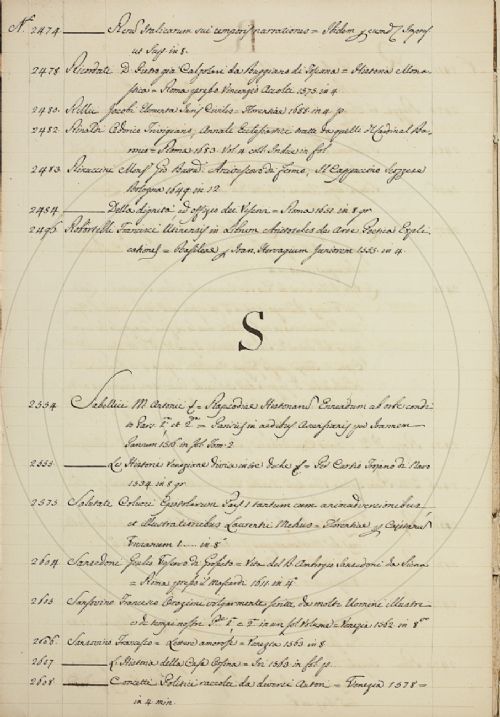 N.° 2474 ——— Rerū Italicarum sui temporis narrationes = Ibidem p eundē Impres
ut Supᵃ in 8.
2478 Ricordati D. Pietro già Calzolari da Buggiano di Toscana = Historia Mona
stica = Roma presso Vincenzo Accolti 1575 in 4.
2480 Rilli Jacobi Elementa Juris Civilis = Florentiae 1688 in 4. p.
2482 Rinaldi Odorico Trivigiano, Annali Ecclesiastici tratti da quelli del Cardinal Ba
ronio = Roma 1683 Vol. 4 coll Indice in fol.
2483 Rinuccini Monsʳ Gio. Batta. Arcivescovo di Fermo, Il Cappuccino Scozzese
Bologna 1649 in 12
2484 ——— Della dignità ed offizio dei Vescovi = Roma 1651 in 8 gr.
2496 Robortelli Francisci Utinensis in Librum Aristotelis de Arte Poetica Expli
cationes = Basileae p Ioan. Hervagium Juniorem 1555 in 4.
S
2554 Sabellici M. Antonii = Rapsodiae Historiarū Enneadum ab orbe condi
to Pars 1ᵃ et 2ᵈᵃ = Parisiis in aedibus Ascensianis Joannem
Parvum 1516 in fol Tom. 2.
2555 ——— Le Historie Veneziane divise in tre Deche = Per Curtio Trojano di Navo
1534 in 8 gr
2575 Salutati Colucci Epistolarum Pars 1 tantum cum animadversionibus,
et illustrationibus Laurentii Mehus = Florentiae p Cajetanū
Vivianum 1..... in 8°
2604 Sansedoni Giulio Vescovo di Grosseto = Vita del B. Ambrogio Sansedoni da Siena
= Roma presso il Mascardi 1611 in 4°
2605 Sansovino Francesco Orazioni volgarmente scritte da molti Uomini Illustri
de tempi nostri Pᵗᵉ 1ᵃ e 2ᵃ in un sol Volume = Venezia 1562 in 8ᵛᵒ
2606 Sansovino Francesco = Lettere amorose = Venezia 1563 in 8
2607 ——— L'Historia della Casa Orsina = Ivi 1565 in fol. p.
2608 ——— Concetti Politici raccolti da diversi Autori = Venezia 1578 =
in 4 min.